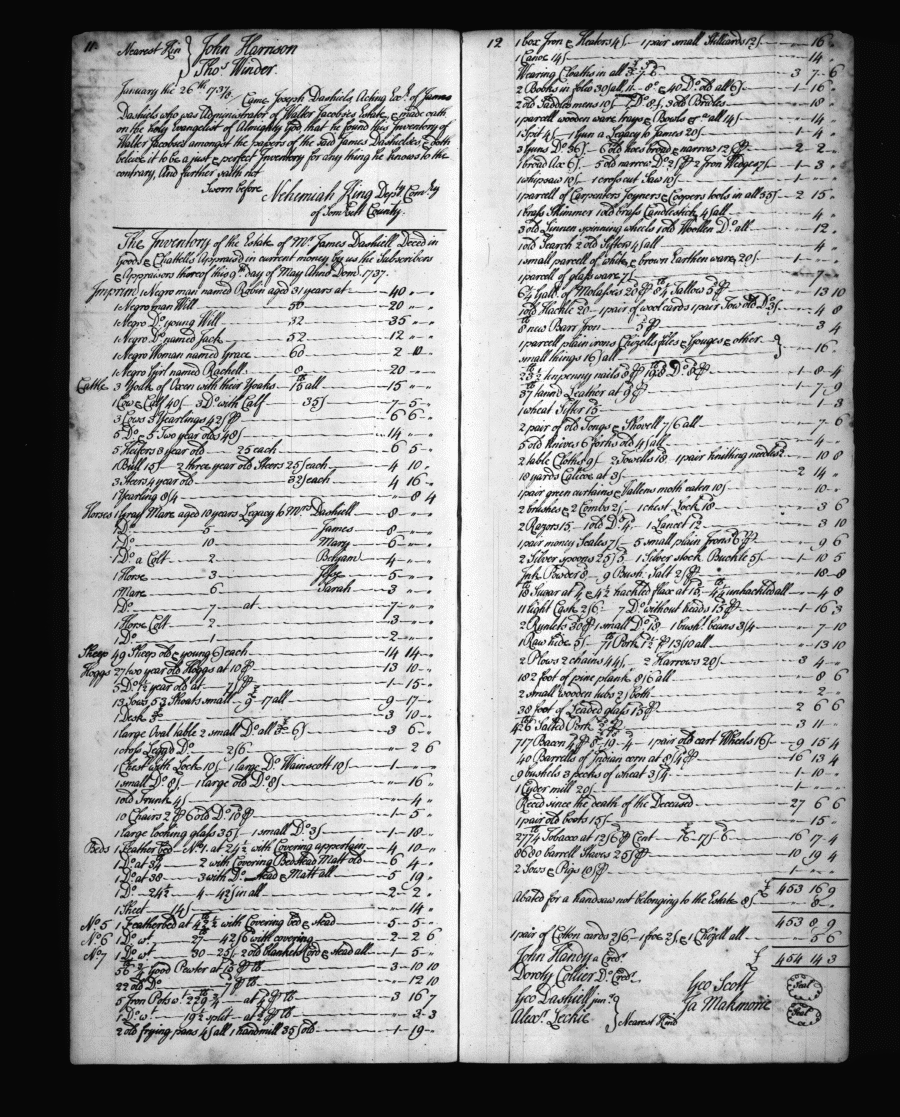 11
Nearest Kin } John Harrison
Thos. Winder.
January the 26th 1737/8 Came Joseph Dashiele Acting Exr. of James
Dashiele who was Administrator of Walter Jacobses Estate & made oath
on the holy Evangelist of Almighty God, that he found this Inventory of
Walter Jacobses amongst the papers of the said James Dashieles & doth
beleive it to be a just & perfect Inventory for any thing he knows to the
contrary, And further saith not
Sworn before Nehemiah King Depty Comry
of Somersett County.
The Inventory of the Estate of Mr. James Dashiell Deced in
Goods & Chattells Appraisd in current money by us the Subscribers
& Appraisors thereof this 9th Day of May Anno Dom 1737.
Imprim 1 Negro man named Robin aged 31 years at 40 " "
1 Negro man Will 50 20 " "
1 Negro Do. young Will 32 35 " "
1 Negro Do. named Jack 52 12 " "
1 Negro Woman named Grace 60 2 10 "
1 Negro Girl named Rachell 8 20 " "
Cattle 3 Yolk of Oxen with their Yoaks all 15 " "
1 Cow & Calf 40/ 3 Do. with Calf 35/ 7 5 "
3 Cows 3 Yearlings 42/ 6 6 "
5 Do. & 5 Two year olds 48/ 14 " "
5 Heifors 3 year old 25 each 6 5 "
1 Bull 15/ 2 three year old Steers 25/ each 4 10 "
3 Steers 4 year old 32/ each 4 16 "
1 Yearling 8/4 " 8 4
Horses 1 Gray Mare aged 10 years Legacy to Mrs Dashiell 8 " "
1 Do. 5 James 8 " "
1 Do. 10 Mary 6 " "
1 Do. a Colt 2 Benjam 4 " "
1 Horse 3 5 " "
1 Mare 6 Sarah 3 " "
1 Do. 7 at 7 " "
1 Horse Colt 2 3 " "
1 Do. 1 2 " "
Sheep 49 Sheep old & young 6/ each 14 14 "
Hoggs 27 two year old Hoggs at 10/ 13 10 "
5 Do. 1½ year old at 7/ 1 15 "
13 Sows 53 Shoats small 9 17 all 9 17 "
1 Desk 3 10 "
1 large Oval table 2 small Do. all 3 6/ 3 6 "
1 cross Legg'd Do. 2/6 " 2 6
1 Chest with Lock 10/ 1 large Do. Wainscott 10/ 1 " "
1 small Do. 8/ 1 large old Do. 8/ 16 "
1 old Trunk 4/ 4 "
10 Chairs 2/ 6 old Do. 10d 1 5 "
1 large looking glass 35/ 1 small Do. 3/ 1 18 "
Beds 1 Feather bed No. 1 at 24½ with Covering appertain 4 10 "
1 Do. at 34 2 with Covering Bedstead Matt old 6 4 "
1 Do. at 38 3 with Do. stead & Matt all 5 19 "
1 Do. 24½ 4 42/ in all 2 2 "
1 Sheet 14/ 14 "
No. 5 1 Featherbed at 42½ with Covering bed & stead 5 5 "
No. 6 1 Do. wt. 27 42/6 with covering 2 2 6
No. 7 1 Do. wt. 30 25/ 2 old blankets Cord & stead all 1 5 "
56 Good Pewter at 3 10 10
22 old Do. 7 12 10
5 Iron Pots wt. 229 at 4 3 16 7
1 Do. wt. 19½ split at 2 3 3
2 old frying pans 4/ all 1 handmill 35/ old 1 19 "
12
1 box Iron & Heaters 4/ 1 pair small Stilliards 12/ 16 "
1 Canoe 14/ 14 "
Wearing Cloaths in all 3 7 6 3 7 6
2 Books in folio 30/ all 11 8o & 40 Do. old all 6/ 1 16 "
2 old Saddles mens 10/ 1 Do. 8/ 3 old Bridles 18 "
1 parcell wooden ware trays & Bowls & ca. all 14/ 14 "
1 Spit 4/ 1 Gun a Legacy to James 20/ 1 4 "
3 Guns Do. 36/ 6 old hoes broad & narrow 12/ 2 2 "
1 broad Ax 6/ 5 old narrow Do. 2/ 2 Iron Wedges 7/ 1 3 "
1 whipsaw 10/ 1 cross cut Saw 10/ 1 " "
1 parcell of Carpenters Joyners & Coopers tools in all 55/ 2 15 "
1 brass Skimmer 1 old brass Candlestick 4/ all 4 "
3 old Linnen spinning wheels 1 old Woollen Do. all 12 "
1 old Search 2 old Sifters 4/ all 4 "
1 small parcel of white & brown Earthen ware, 20/ 1 " "
1 parcell of glass ware 7/ 7 "
64 Gall. of Molasses 20 84 Tallow 5 13 10
1 old Hackle 20 1 pair of wool cards 1 pair Tow old Do. 3/ 4 8
8 new Barr Iron 5 3 4
1 parcell plain irons Chizells files & Gouges & other
small things 16/ all } 16 "
tenpenny nails 1 8 4
37 tann'd Leather at 9 1 7 9
1 wheat Sifter 15 1 3
2 pair of old Tongs & Shovell 7/6 all 7 6
5 old Knives 6 forks old 4/ all 4 "
2 table Cloths 9/ 2 Towells 18 1 pair knitting needles 2 10 8
18 yards Callicoe at 3/ 2 14 "
1 pair green curtains & Vallens moth eaten 10/ 10 "
2 brushes & 2 Combs 2/ 1 chest Lock 18 3 6
2 Razors 15 1 old Do. 4 1 Lancet 12 3 10
1 pair money Scales 7/ 5 small plain Irons 6 9 6
2 Silver spoons 25/ 1 Silver stock Buckle 5/ 1 10 5
Ink Powder 8 9 Bush. Salt 2/ 18 8
18 Sugar at 4 & 4½ hackled flax at 15 unhackled all 4 8
11 tight Cask 2/6 7 Do. without heads 15 1 16 3
2 Runlets 30 1 small Do. 18 1 bushl. beans 3/4 7 10
1 Raw hide 5/ 71 Pork 13/10 all 13 10
2 Plows 2 chains 44/ 2 Harrows 20/ 3 4 "
182 foot of pine plank 8/6 all 8 6
2 small wooden tubs 2/ both 2 "
38 foot of Leaded glass 15 2 6 6
426 Salted Pork 3 11 "
717 Bacon 1 pair old cart Wheels 16/ 9 15 4
40 Barrells of Indian corn at 8/4 16 13 4
9 bushels 3 pecks of wheat 3/4 1 10 "
1 Cyder mill 20/ 1 " "
Reced since the death of the Deceased 27 6 6
1 pair old boots 15/ 15 "
2774 Tobacco at 12/6 Cent 16 17 4
8680 barrell Staves 25/ 10 19 4
2 Sows & Pigs 10/ 1 " "
£ 453 16 9
Abated for a handsaw not belonging to the Estate 8/ 8 "
453 8 9
1 pair of Cotton cards 2/6 1 froe 2/ & 1 Chizell all 5 6
£ 454 14 3
John Handy a Credr.
Doroty Collier Do. Credr.
Geo Dashiell junr.
Alexr. Leckie } Nearest Kind
Geo Scott Seal
Ja Makmorie Seal